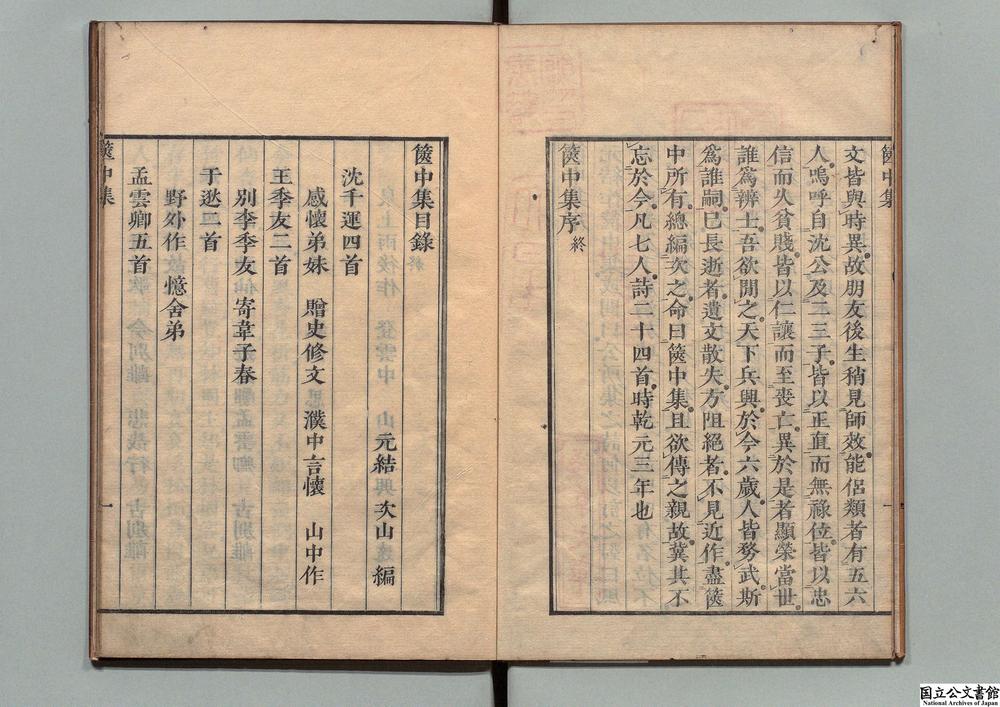 文皆與時異故朋友後生稍見師效能侶類者有五六
人嗚呼自沈公及二三子皆以正直而無祿位皆以忠
信而久貧賤皆以仁讓而至喪亡異於是者顯榮當世
誰爲辨士吾欲問之天下兵興於今六歲人皆務武斯
爲誰嗣已長逝者遺文散失方阻絕者不見近作盡篋
中所有總編次之命曰篋中集且欲傳之親故冀其不
忘於今凡七人詩二十四首時乾元三年也
篋中集序終
篋中集
篋中集目錄
元結 次山 編
沈千運四首
感懷弟妹 贈史修文 濮中言懷 山中作
王季友二首
別李季友 寄韋子春
于逖二首
野外作 憶舍弟
孟雲卿五首
篋中集
一
国立公文書館
National Archives of Japan